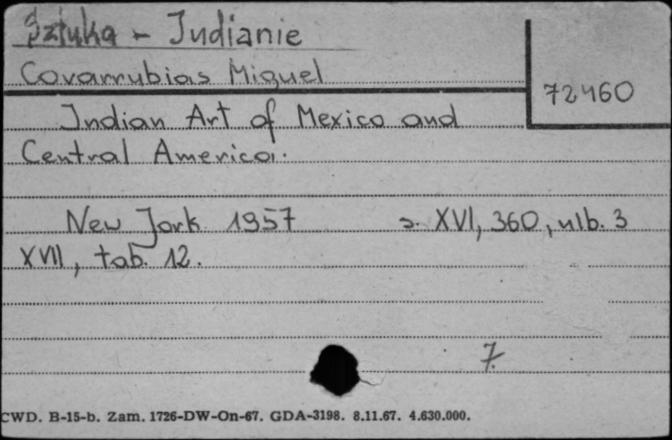 Sztuka - Indianie
Covarrubias Miguel
72460
Indian Art of Mexico and
Central America.
New Jork 1957 s. XVI, 360, nlb. 3
XVII, tab. 12.
7
CWD. B-15-b. Zam. 1726-DW-On-67. GDA-3198. 8.11.67. 4.630.000.